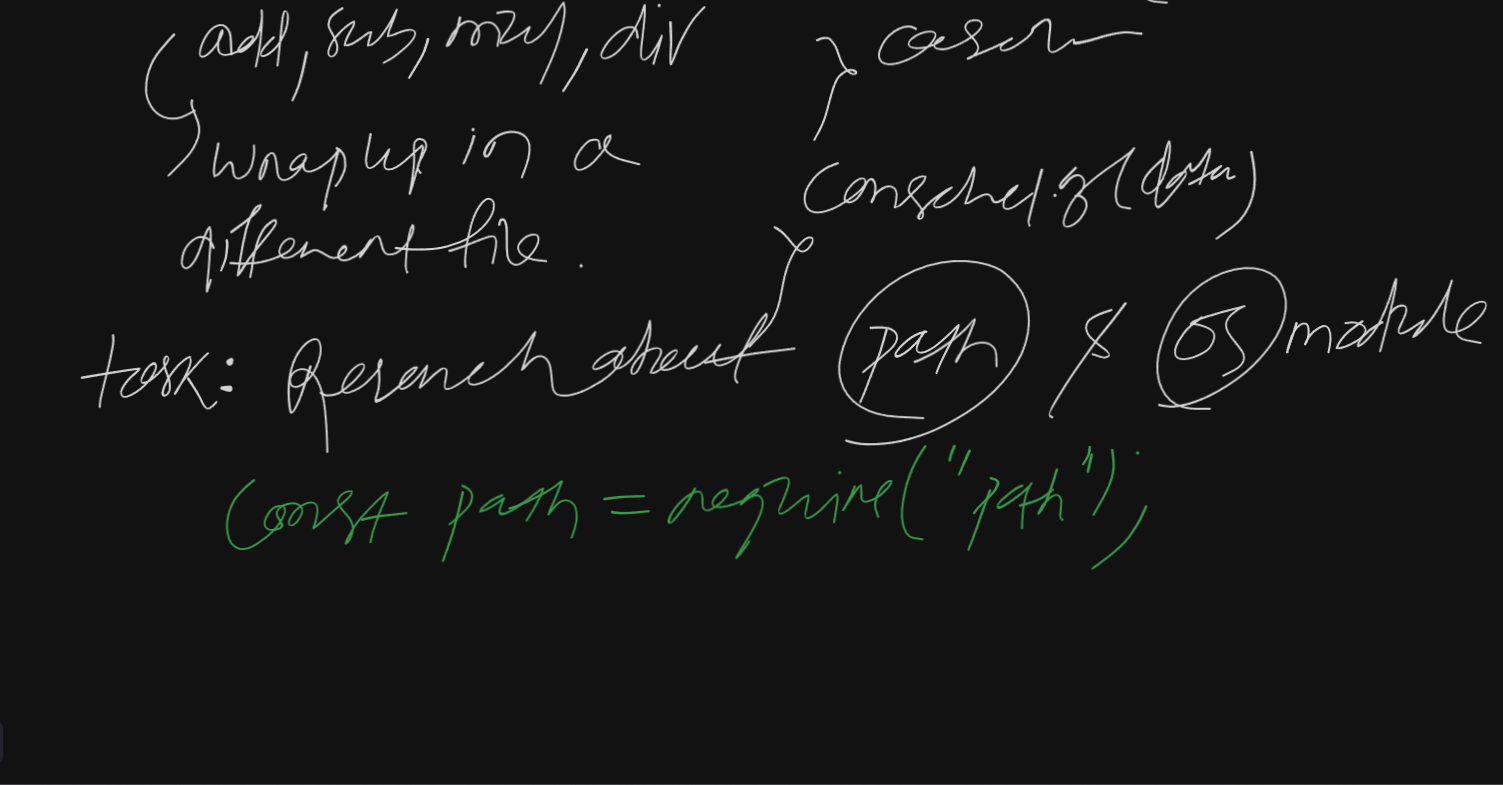 add, sub, mul, div
wrap up in a
different file.
(data)
task: Research about path & os module
const path = require("path");